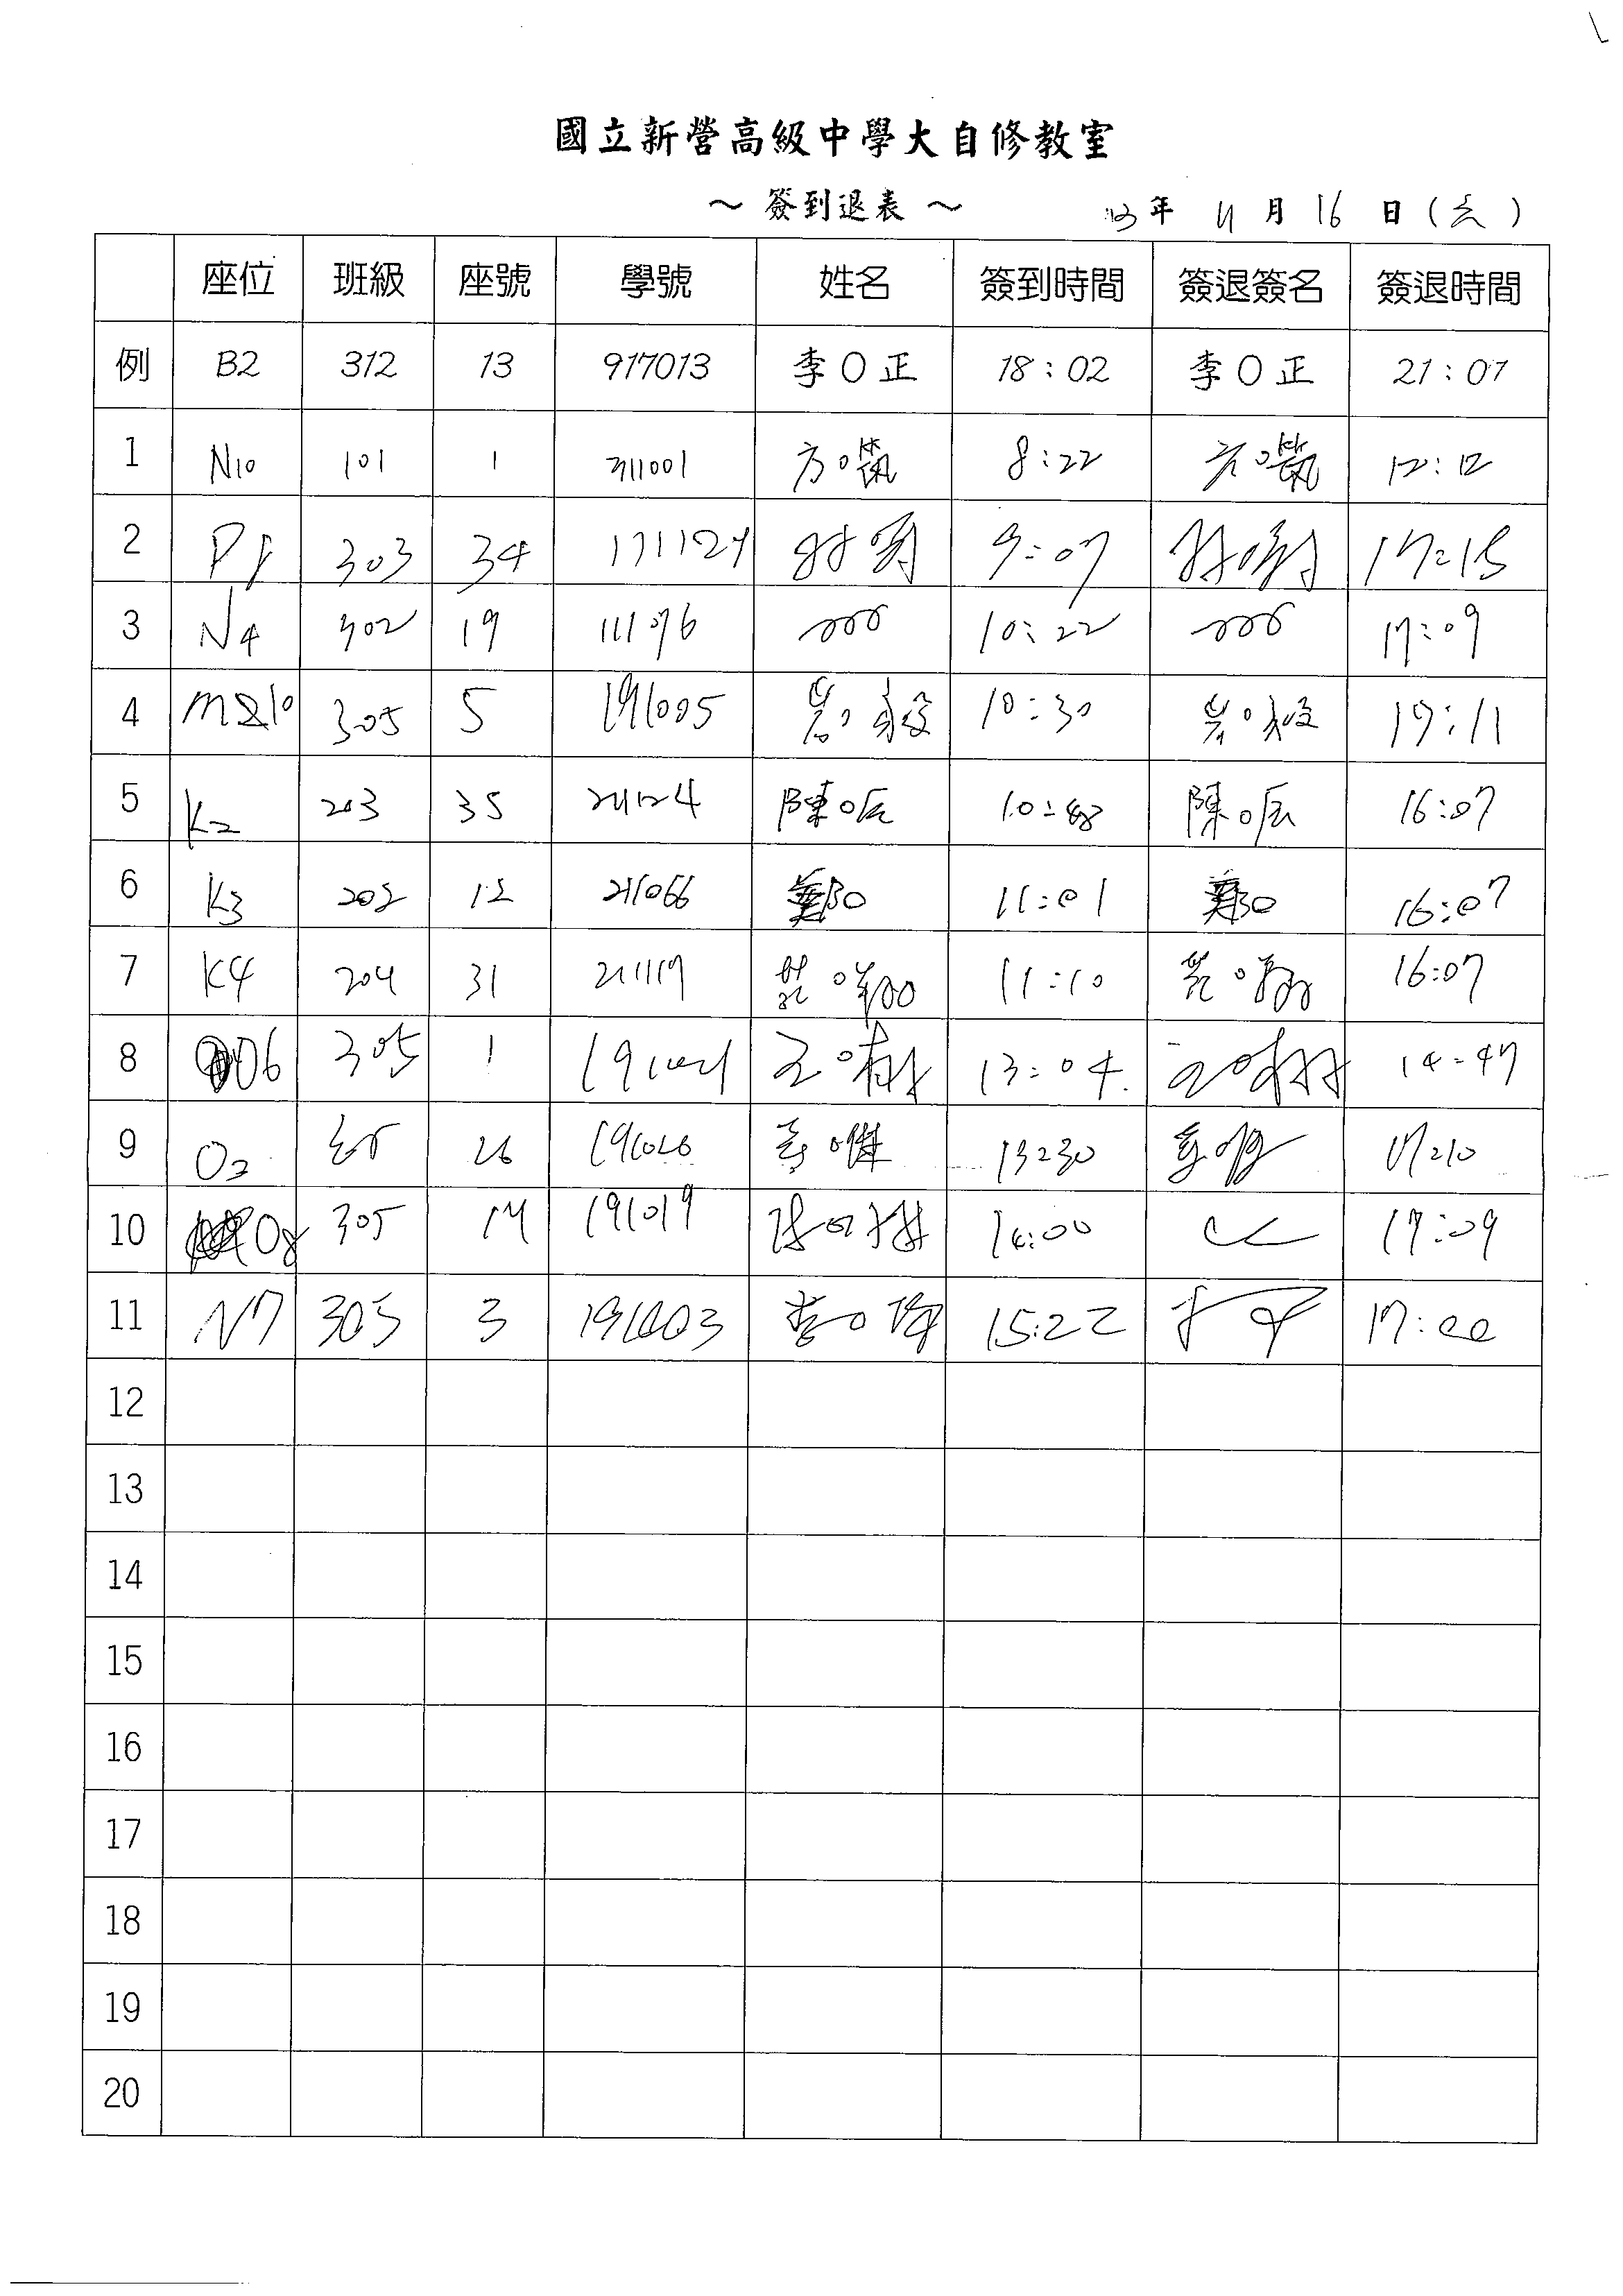 國立新營高級中學大自修教室
～ 簽到退表 ～ 113 年 11 月 16 日 ( 六 )
座位 班級 座號 學號 姓名 簽到時間 簽退簽名 簽退時間
例 B2 312 13 917013 李O正 18:02 李O正 21:07
1 N10 101 1 311001 方O 8:22 方O 12:12
2 303 34 9:07 17:15
3 N4 302 19 111076 10:22 17:09
4 305 5 191005 10:30 17:11
5 K2 203 35 211124 陳O辰 10:48 陳O辰 16:07
6 K3 202 12 211066 鄭O 11:01 鄭O 16:07
7 K4 204 31 211119 11:10 16:07
8 O6 305 1 13:04 14:47
9 O2 305 26 191026 13:30 17:10
10 O8 305 191019 14:00 17:09
11 N7 305 3 191003 李O 15:22 17:00
12
13
14
15
16
17
18
19
20